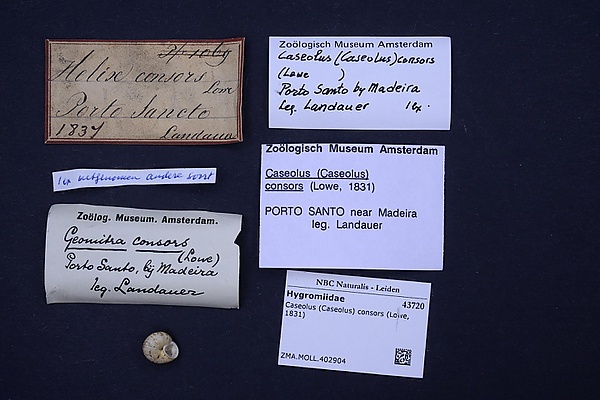 Helix consors
Lowe
Porto Sancto
1837 Landauer
1 ex uitgenomen andere soort
Zoölog. Museum. Amsterdam.
Geomitra consors
(Lowe)
Porto Santo, bij Madeira
leg. Landauer
Zoölogisch Museum Amsterdam
Caseolus (Caseolus) consors
(Lowe )
Porto Santo by Madeira
leg. Landauer 1 ex.
Zoölogisch Museum Amsterdam
Caseolus (Caseolus)
consors (Lowe, 1831)
PORTO SANTO near Madeira
leg. Landauer
NBC Naturalis - Leiden
Hygromiidae 43720
Caseolus (Caseolus) consors (Lowe,
1831)
ZMA.MOLL.402904